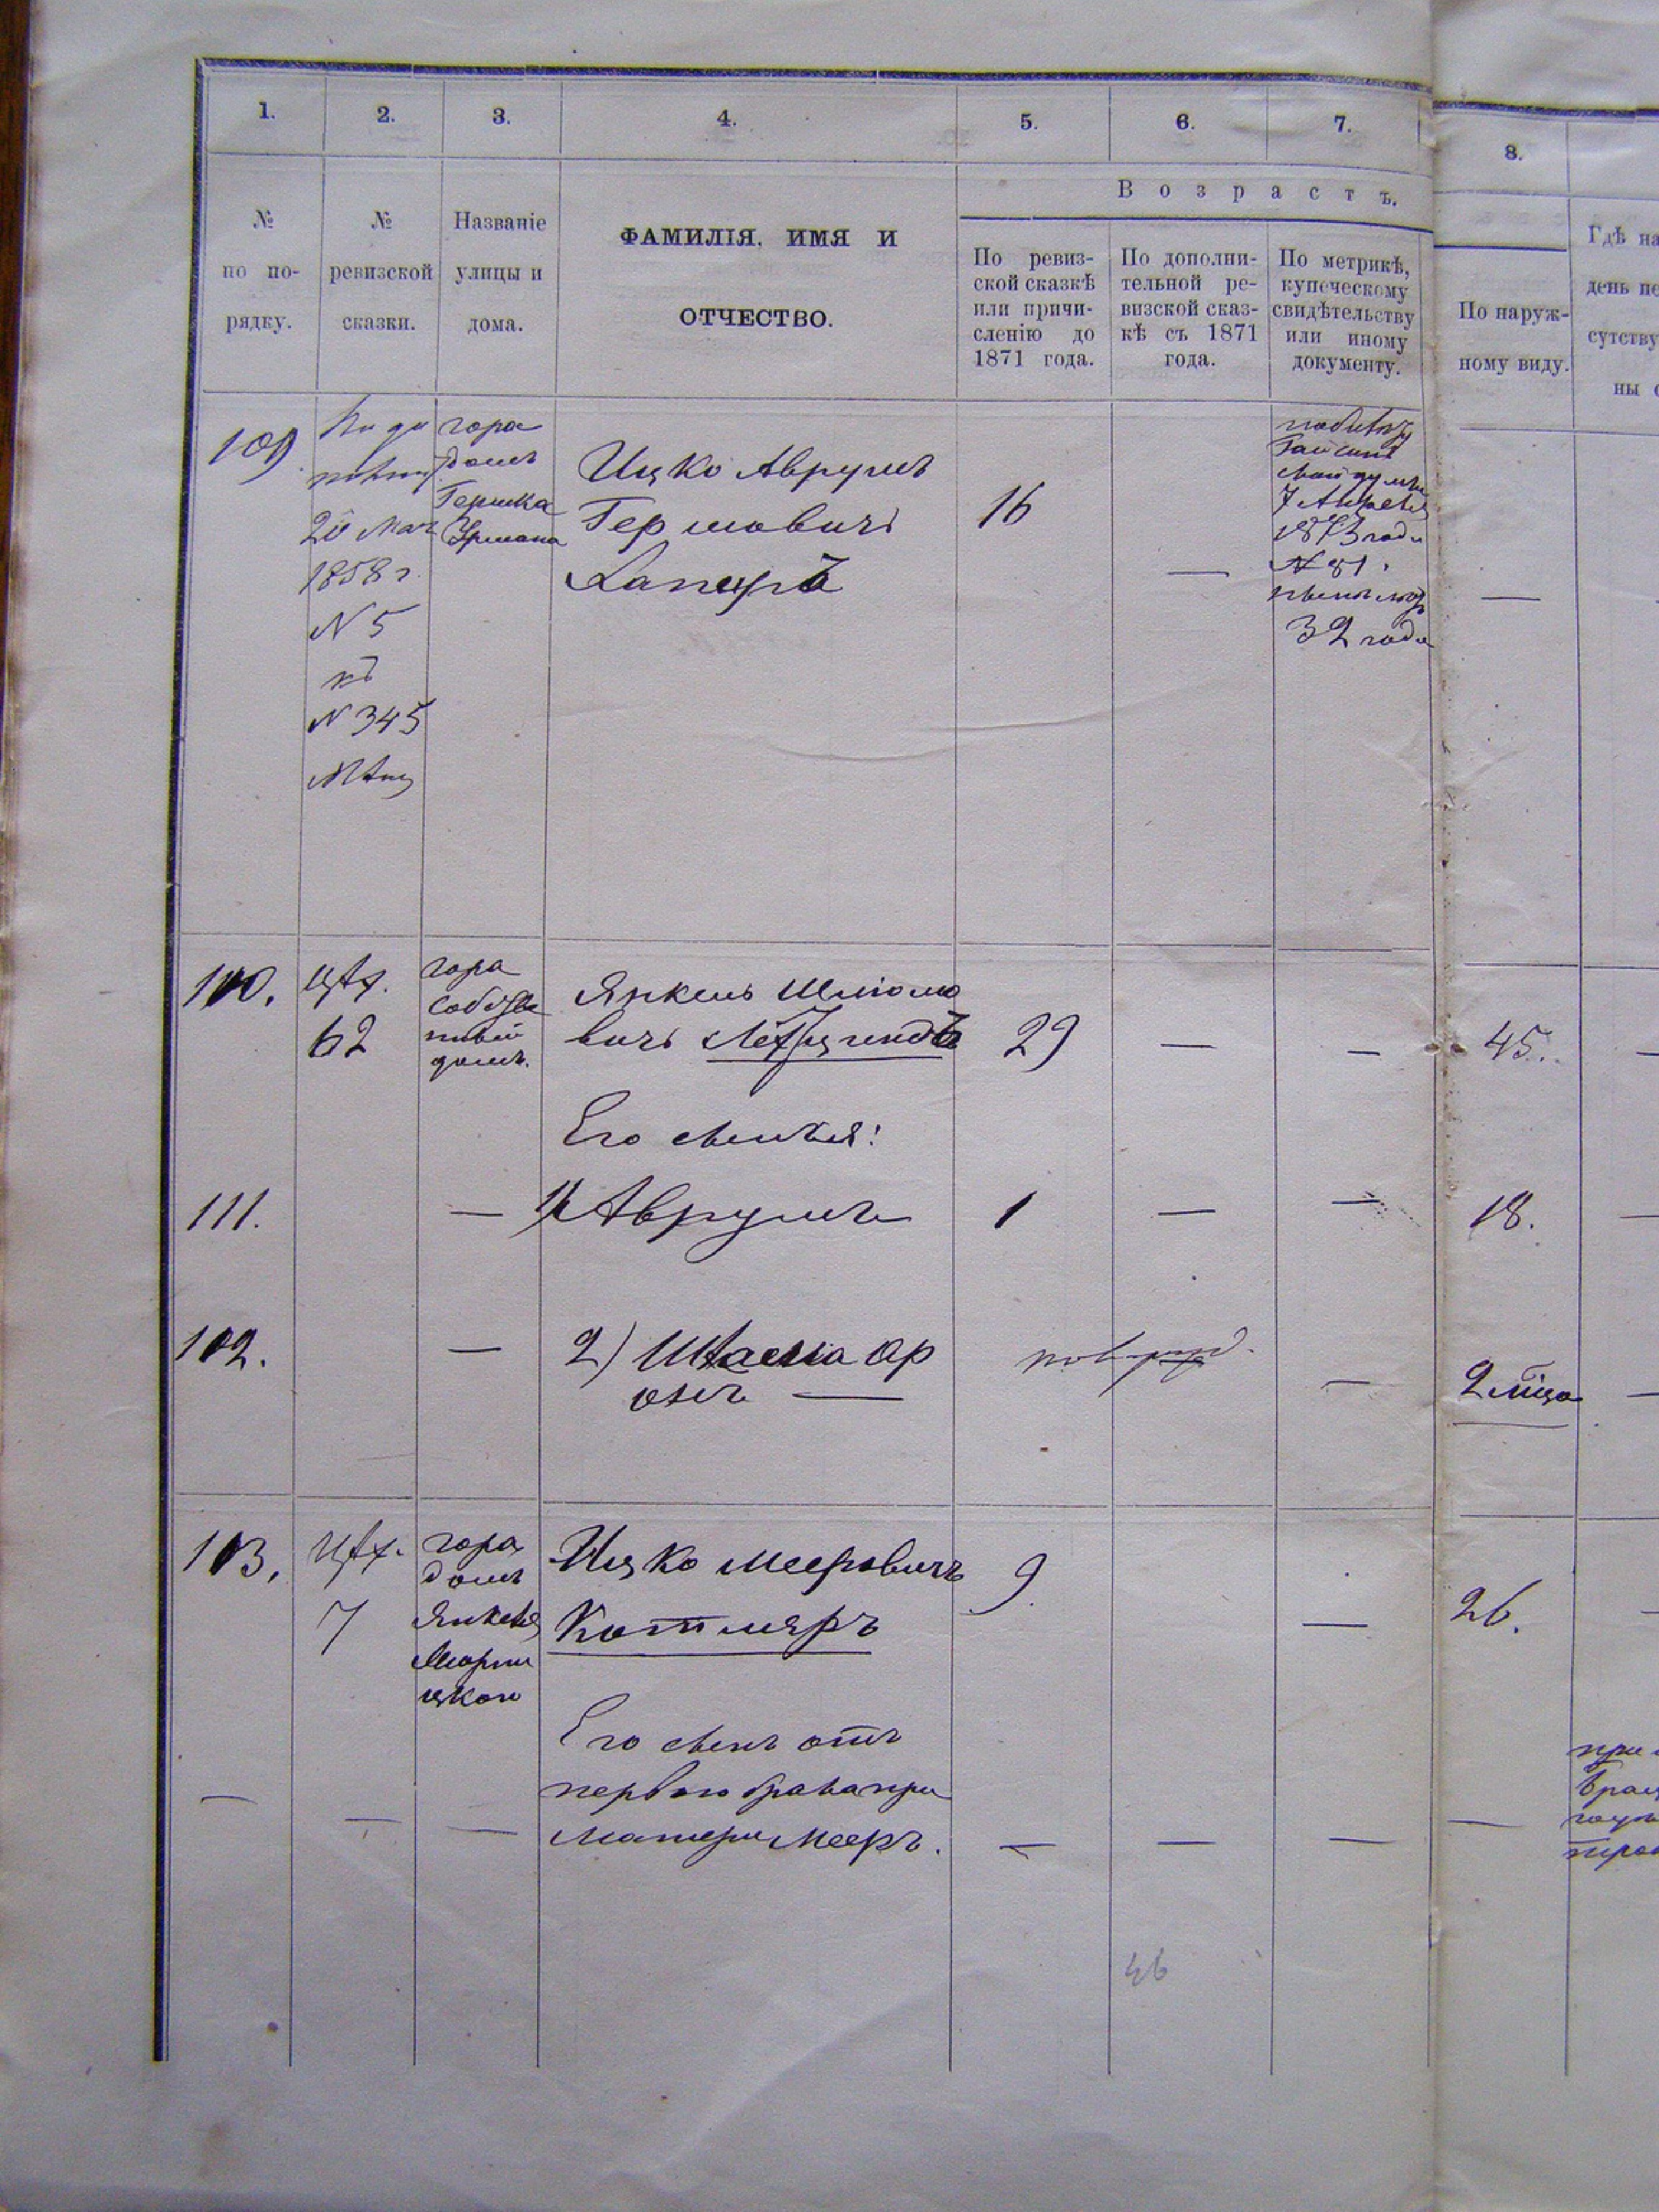 1.
2.
3.
4.
5.
6.
7.
8.
Возрастъ.
№
по по-
рядку.
№
ревизской
сказки.
Названіе
улицы и
дома.
ФАМИЛІЯ, ИМЯ И
ОТЧЕСТВО.
По ревиз-
ской сказкѣ
или причи-
сленію до
1871 года.
По дополни-
тельной ре-
визской сказ-
кѣ съ 1871
года.
По метрикѣ,
купеческому
свидѣтельству
или иному
документу.
По наруж-
ному виду.
Гдѣ на
день
сутству
ны
109
20
1858 г.
N 5
къ
N 345
гора
домъ
Гершка
Ицко Аврумъ
Гершовичъ
Сапиръ
16
—
7 Апрѣля
1873 года
N 81
32 года
—
110.
62
гора
собстве
домъ.
Янкель Шліомо
вичъ
29
—
—
45.
—
Его семья:
111.
—
1) Аврумъ
1
—
—
18.
—
112.
—
2) Ар
онъ —
—
2 мѣца
—
113.
7
гора
домъ
Янкеля
цкого
Ицко Мееровичъ
Котляръ
9.
—
26.
—
Его сынъ отъ
перваго брака при
матери Мееръ.
—
—
—
—
—
—
—
при
46